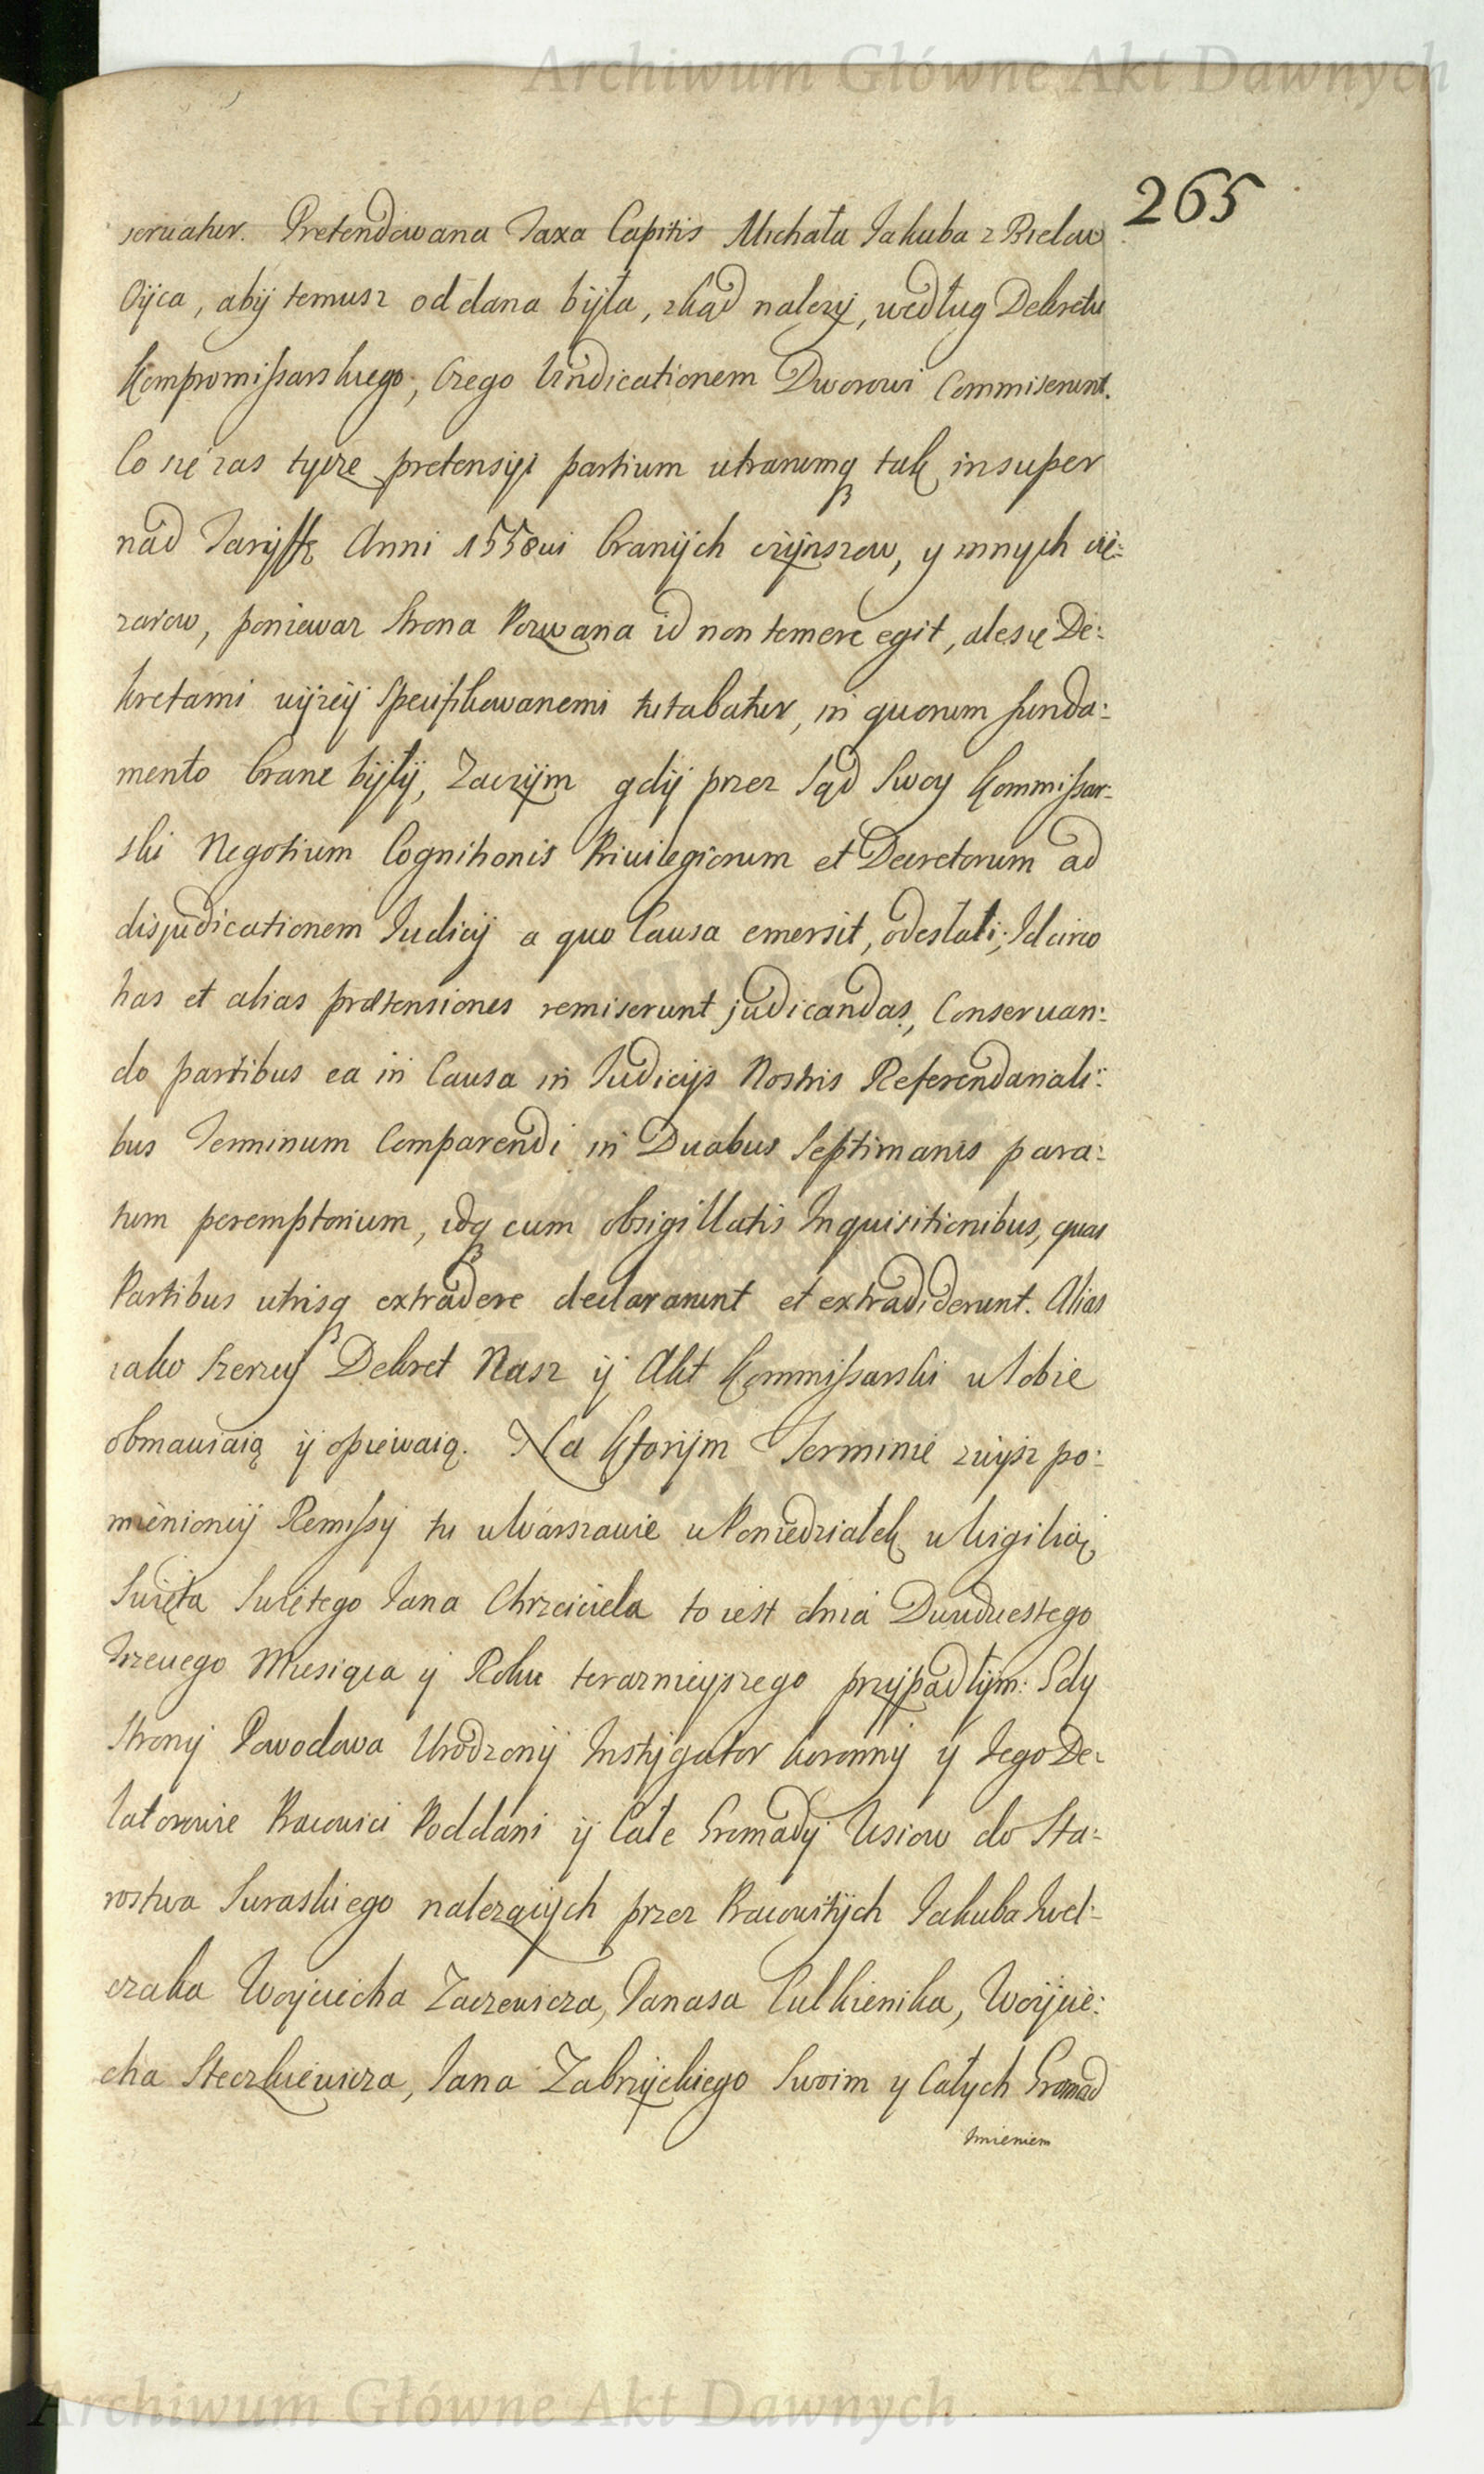 Archiwum Główne Akt Dawnych
265
seruatur. Pretendowana Taxa Capitis Michała Jakuba z Bielaw
Oyca, abÿ temusz oddana bÿła, zkąd nalezy, według Dekretu
Kompromissarskiego; Czego Vindicationem Dworowi Commiserunt.
Co się zas tycze pretensyi partium utrarumq3 tak insuper
nad Tarÿffę Anni 1558ui branÿch czÿnszow, y innych cię:
zarow, poniewaz Strona Pozwana id non temere egit, alesię De:
kretami wÿzeÿ Specifikowanemi tutabatur, in quorum funda:
mento brane bÿłÿ, Zaczÿm gdÿ przez Sąd Swoy Kommissar:
ski Negotium Cognitionis Priuilegiorum et Decretorum ad
disjudicationem Judicÿ a quo Causa emersit, odesłali; Idcirco
has et alias prætensiones remiserunt judicandas, Conseruan:
do partibus ea in Causa in Judicÿs Nostris Referendariali:
bus Terminum Comparendi in Duabus Septimanis para:
tum peremptorium, idq3 cum obsigillatis Inquisitionibus, quas
Partibus utrisq3 extradere declararunt et extradiderunt. Alias
iako szerzeÿ Dekret Nasz ÿ Akt Kommissarski w Sobie
obmawiaią ÿ opiewaią. Na Ktorÿm Terminie zwysz po:
mienioneÿ Remissÿ tu w Warszawie w Poniedziałek w Wigilią
Swięta Swiętego Jana Chrzciciela to iest dnia Dwudziestego
trzeciego Miesiąca ÿ Roku terazniejszego przÿpadłym: Gdy
Stronÿ Powodowa Urodzonÿ Instÿgator koronnÿ ÿ Jego De:
latorowie Pracowici Poddani ÿ Całe Gromadÿ Wsiow do Sta:
rostwa Suraskiego nalezących przez Pracowitÿch Jakuba Zwel:
czaka Woyciecha Zaczewicza, Panasa Culkienika, Woÿcie:
cha Steczkiewicza, Jana Zabrzÿckiego Swoim y Całych Gromad
Imieniem
Archiwum Główne Akt Dawnych